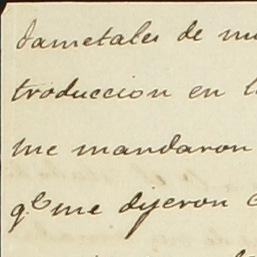 dametales de mu
troduccion en l
me mandaron
q.e me dijeron c